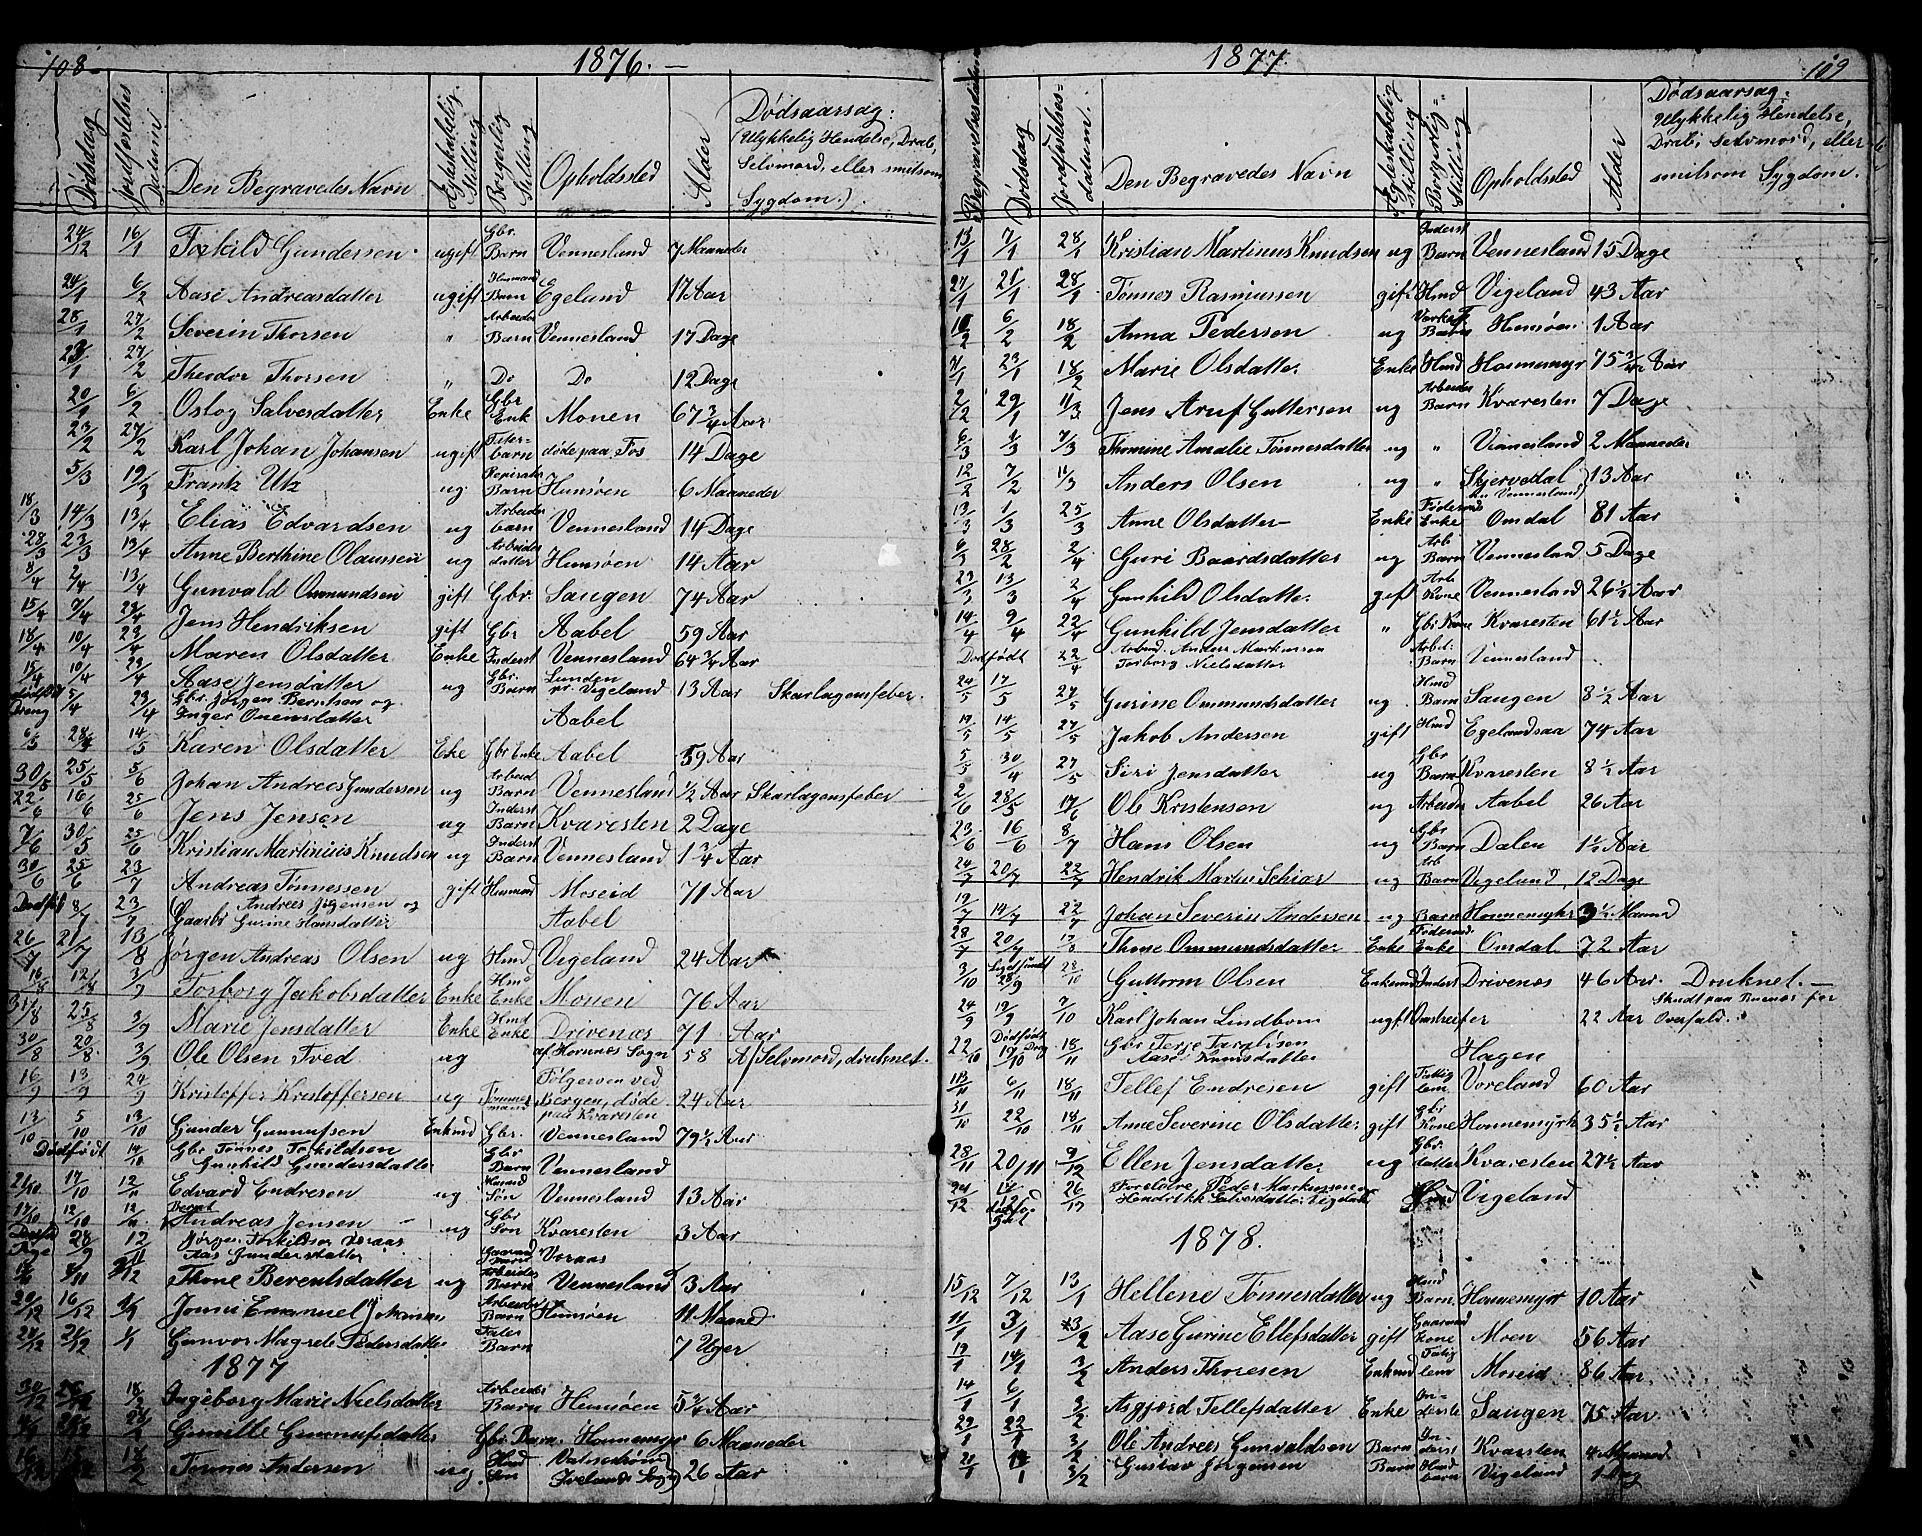 108
1876. —
Dødsdag
Jordfæstelses Datum
Den Begravedes Navn
Egteskabelig Stilling
Borgerlig Stilling
Opholdssted
Alder
Dødsaarsag:
(Ulykkelig Hendelse, Drab,
Selvmord, eller smitsom
Sygdom.)
24/12 16/1 Torkild Gundersen ugift Gbr. Barn Vennesland 7 Maaneder
24/1 6/2 Aase Andreasdatter ugift Husmand Barn Egeland 17 Aar
28/1 27/2 Severin Thorsen " Arbeider Barn Vennesland 17 Dage
23/1 27/2 Theodor Thorsen " Do Do 12 Dage
20/1 6/2 Oslog Salvesdatter Enke Gbr Enk Monen 67 3/4 Aar
23/2 27/2 Karl Johan Johansen ugift barn døde paa Fos 14 Dage
5/3 19/3 Frantz Utz ug. Barn Hunsøen 6 Maaneder
18/3 14/3 13/4 Elias Edvardsen ug Arbeider barn Vennesland 14 Dage
28/3 23/3 13/4 Anne Berthine Olaussen ug Arbeider datter Hunsøen 14 Aar
8/4 2/4 13/4 Gunvald Ommundsen gift Gbr. Saugen 74 Aar
15/4 7/4 23/4 Jens Hendriksen gift Gbr Aabel 59 Aar
18/4 10/4 23/4 Maren Olsdatter Enke Inderst Vennesland 64 3/4 Aar
15/4 10/4 23/4 Aase Jensdatter ug Gbr. Barn Lunden nr. Vigeland 13 Aar Skarlagensfeber.
Dødfødt Dreng 5/4 23/4 Gbr. Jørgen Berntsen og
Inger Onensdatter Aabel
6/5 28/4 14/5 Karen Olsdatter Enke Gbr Enke Aabel 59 Aar
30/5 25/5 5/6 Johan Andreas Gundersen ug Arbeid Barn Vennesland 1/2 Aar Skarlagensfeber
22/6 16/6 25/6 Jens Jensen ug Inderst Barn Kvaresten 2 Dage
7/6 30/5 25/6 Kristian Martinius Knudsen ug Inderst Barn Vennesland 1 3/4 Aar
30/6 25/6 23/7 Andreas Tønnessen gift Husmand Moseid 71 Aar
Dødfød 8/7 23/7 Gaarbr Andreas Jørgensen og
Gurine Hansdatter Aabel
26/7 21/7 13/8 Jørgen Andreas Olsen ug Hmd Vigeland 24 Aar
16/8 12/8 3/9 Torborg Jakobsdatter Enke Hmd Enke Monen 76 Aar
31/8 25/8 3/9 Marie Jensdatter Enke Hmd Enke Drivenæs 71 Aar
30/8 20/8 3/9 Ole Olsen Tved ug af Hornnes Sogn 58 A/ Selvmord, druknet.
16/9 13/9 24/9 Kristoffer Kristoffersen ug Tømmermand Følgesven ved Bergen, døde paa Kvaresten 24 Aar
13/10 5/10 13/10 Gunder Gunnufsen Enkmd Gbr. Vennesland 79 1/2 Aar
Dødfødt 14/10 Gbr Tønnes Torkildsen
Gunhild Gundersdatter Gbr Barn Vennesland
21/10 17/10 12/11 Edvard Endresen ug Søn Vennesland 13 Aar
17/10 12/10 12/11 Bernt Andreas Jensen ug Gbr Søn Kvaresten 3 Aar
28/9 12/11 Jørgen Torkildsen Voraas
Aas Gundersdatter Voraas
Thone Berentsdatter ug Arbeider Barn Vennesland 3 Aar
20/12 16/12 1/1 Emanuel Johansen Arbeider Barn Hunsøen 11 Maaned
24/12 1/1 Gunvor Magrete Pedersdatter Barn 7 Uger
1877
30/12 26/12 18/2 Ingeborg Marie Nielsdatter Arbeider Barn Hunsøen 5 3/4 Aar
Gunille Gunnufsdatter Gbr Barn. Honnemyr 6 Maaneder
Tønnes Andersen ug Hmd Søn Sogn 26 Aar
1877
109
Begravelsesdatum
Dødsdag
Jordfæstelsesdatum.
Den Begravedes Navn
Egteskabelig Stilling
Borgerlig Stilling
Opholdsted
Alder
Dødsaarsag:
Ulykkelig Hendelse,
Drab, Selvmord, eller
smitsom Sygdom.
13/1 7/1 28/1 Kristian Martinus Knudsen ug Inderst Barn Vennesland 15 Dage
27/1 21/1 28/1 Tønnes Rasmussen gift Hmd Vigeland 43 Aar
10/2 6/2 18/2 Anna Pedersen ug Barn Hunsøen 1 Aar
23/1 18/2 Marie Olsdatter Enke Hmd Honnemyr 75 3/4 Aar
2/2 29/1 11/3 Jens Aruf Guttersen ug Arbeider Barn Kvaresten 7 Dage
6/3 1/3 7/3 Thomine Amalie Tønnesdatter ug " Vennesland 2 Maaneder
12/2 7/2 11/3 Anders Olsen ug " Skjervedal (nr Vennesland) 13 Aar
13/3 1/3 25/3 Anne Olsdatter Enke Føderaads Enke Omdal 81 Aar
6/3 28/2 2/4 Guri Baardsdatter ug Arb Barn Vennesland 5 Dage
23/3 13/3 2/4 Gunhild Olsdatter gift Arb Kone Vennesland 26 1/2 Aar
14/4 9/4 22/4 Gunhild Jensdatter " Gbr Kone Kvaresten 61 1/2 Aar
Dødfødt 22/4 Arbmd. Anders Markussen
Torborg Nielsdatter Arbei. Barn Vennesland
24/5 17/5 27/5 Gurine Ommundsdatter ug Hmd Barn Saugen 8 1/2 Aar
19/5 14/5 27/5 Jakob Andersen gift Hmd Egelandsaa 74 Aar
5/5 30/4 27/5 Siri Jensdatter ug Gbr Barn Kvaresten 8 1/2 Aar
2/6 28/5 17/6 Ole Kristensen ug Arbeider Aabel 26 Aar
23/6 16/6 8/7 Hans Olsen ug Gbr Barn Dalen 1 1/2 Aar
24/7 20/7 22/7 Hendrik Martin Schiar ug Arb Barn Vigeland 12 Dage
19/7 14/7 22/7 Johan Severin Andersen ug Barn Honnemyhr 3 1/2 Maaned
28/7 20/7 Thone Ommundsdatter Enke Føderaad Enke Omdal 72 Aar
3/10 Liget fundet 28/9 28/10 Guttorm Olsen Enkemd Inderst Drivenes 46 Aar. Druknet. —
24/9 19/9 7/10 Karl Johan Lindbom ugift Omstreifer 22 Aar Overfald.
22/10 Dødfødt 19/10 18/11 Gbr Terje Targesen
Aase Knudsdatter Hagen
6/11 18/11 Tellef Endresen gift Fattiglem Voreland 60 Aar
31/10 22/10 18/11 Anne Severine Olsdatter gift Gbr Kone Honnemyrk 35 1/2 Aar
28/11 20/11 9/12 Ellen Jensdatter ug Gbr. datter Kvaresten 27 1/2 Aar
24/12 Forældre Peder Markussen
Hendrikk Salvesdatter Vigeland Hmd Vigeland
1878.
15/12 7/12 13/1 Hellene Tønnesdatter ug Hmd Barn Honnemyr 10 Aar
11/1 3/1 3/2 Aase Gurine Ellefsdatter gift Gaarmd kone Moen 56 Aar
19/1 14/1 3/2 Anders Thoresen Enkmd Fattig lem Moseid 86 Aar.
14/1 6/1 3/2 Asgjerd Tellefsdatter Enke Inderste Saugen 75 Aar
29/1 22/1 3/2 Ole Andreas Gunvaldsen Barn Inderst Kvarsten 4 Maaned
20/1 3/2 Gustav Jørgensen Barn Hmd barn Vigeland 1 Dag